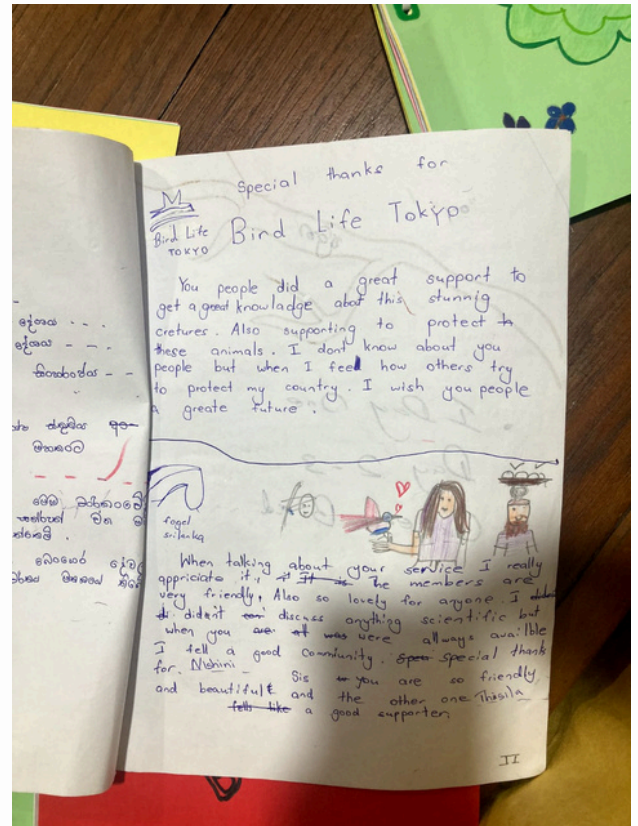 දේශය - - -
දේශය - - -
මහතාට
Special thanks for
Bird Life
TOKYO
Bird Life Tokyo
You people did a great support to
get a great knowladge abot this stunnig
cretures. Also supporting to protect
these animals. I dont know about you
people but when I feel how others try
to protect my country. I wish you people
a greate future.
fogel
srilanka
When talking about your service I really
appriciate it. The members are
very friendly. Also so lovely for anyone. I
didn't discuss anything scientific but
when you were allways availble
I fell a good Community. special thanks
for. Nishini Sis you are so friendly
and beautiful and the other one Thisila
fells like a good supporter.
II